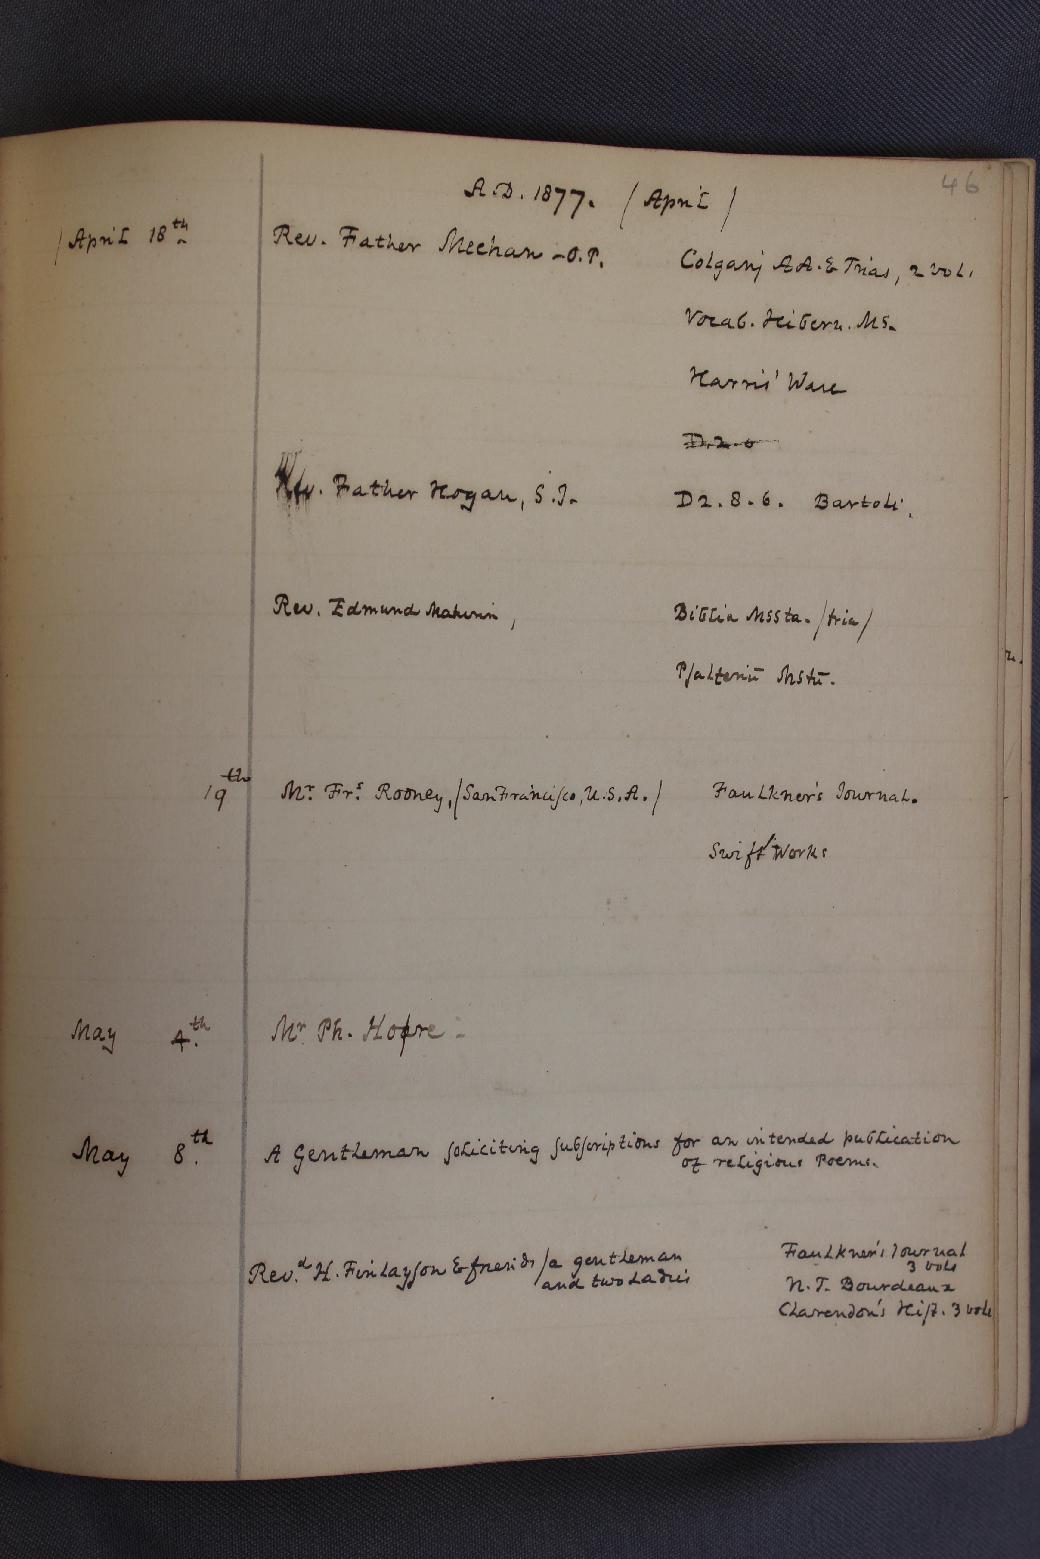 46
A.D. 1877. (April)
(April 18th Rev. Father Meehan - O.P. Colganj AA. & Trias, 2 vol.
Vocab. Hibern. MS.
Harris' Ware
D.2.6
Rev. Father Hogan, S.J. D2.8.6. Bartoli.
Rev. Edmund Biblia Mssta. (tria)
Psalteriū Mstū.
19th Mr. Frs. Rooney, (San Francisco, U.S.A.) Faulkner's Journal.
Swift's Works
May 4th. Mr Ph. Hopre -
May 8th. A Gentleman soliciting subscriptions for an intended publication
of religious Poems.
Rev.d H. Finlayson & friends (a gentleman Faulkner's Journal
and two Ladies 3 vols
N.T. Bourdeaux
Clarendon's Hist. 3 vols